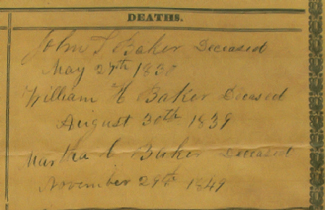 DEATHS.
John S Baker Deceased
May 29th 1830
William H Baker Deceased
August 30th 1839
Martha Baker Deceased
November 29th 1849